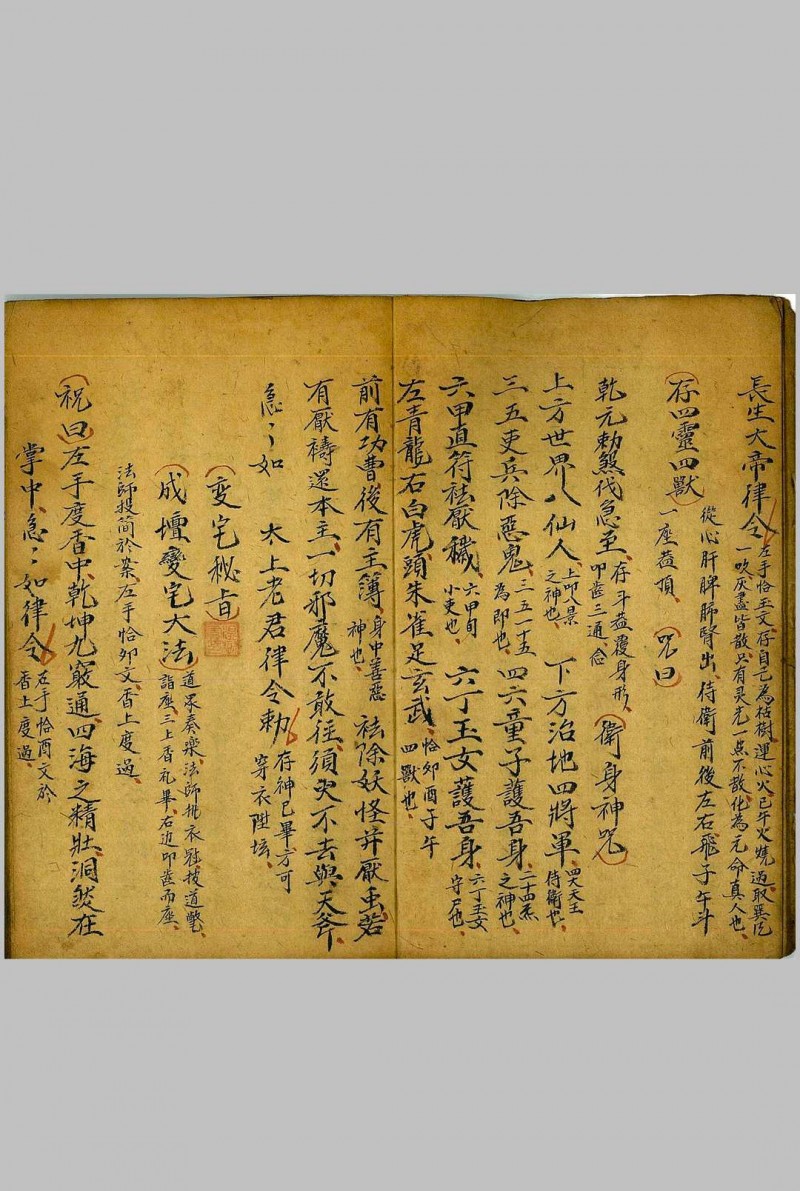 長生大帝律令 左手恰玉文存自己為枯樹運心火巳午火燒過取巽炁
一吹灰盡皆散只有灵光一点不散化為元命真人也
從心肝脾肺腎出侍衛前後左右飛子午斗
存四靈四獸 一座葢頂 咒曰
乾元勅煞伐急至 存斗葢覆身形
叩齒三通念 衛身神咒
上方世界八仙人 上叩八景
之神也 下方治地四將軍 四大天王
侍衛也
三五吏兵除惡鬼 三五一十五
為即也 四六童子護吾身 二十四炁
之神也
六甲直符袪厭穢 六甲旬
小吏也 六丁玉女護吾身 六丁玉女
守尸也
左青龍右白虎頭朱雀足玄武 恰夘酉子午
四獸也
前有功曹後有主簿 身中善惡
神也 袪除妖怪并厭虫若
有厭禱還本主一切邪魔不敢往須臾不去與天斧
急〻如 太上老君律令勅 存神已畢方可
穿衣陞壇
変宅秘旨
成壇變宅大法 道眾奏樂法師抛衣冠披道氅
詣座三上香礼畢右边叩齒而座
法師投简於案左手恰夘文香上度過
祝曰左手度香中乾坤九竅通四海之精壯洞然在
掌中急〻如律令 左手恰酉文於
香上度過